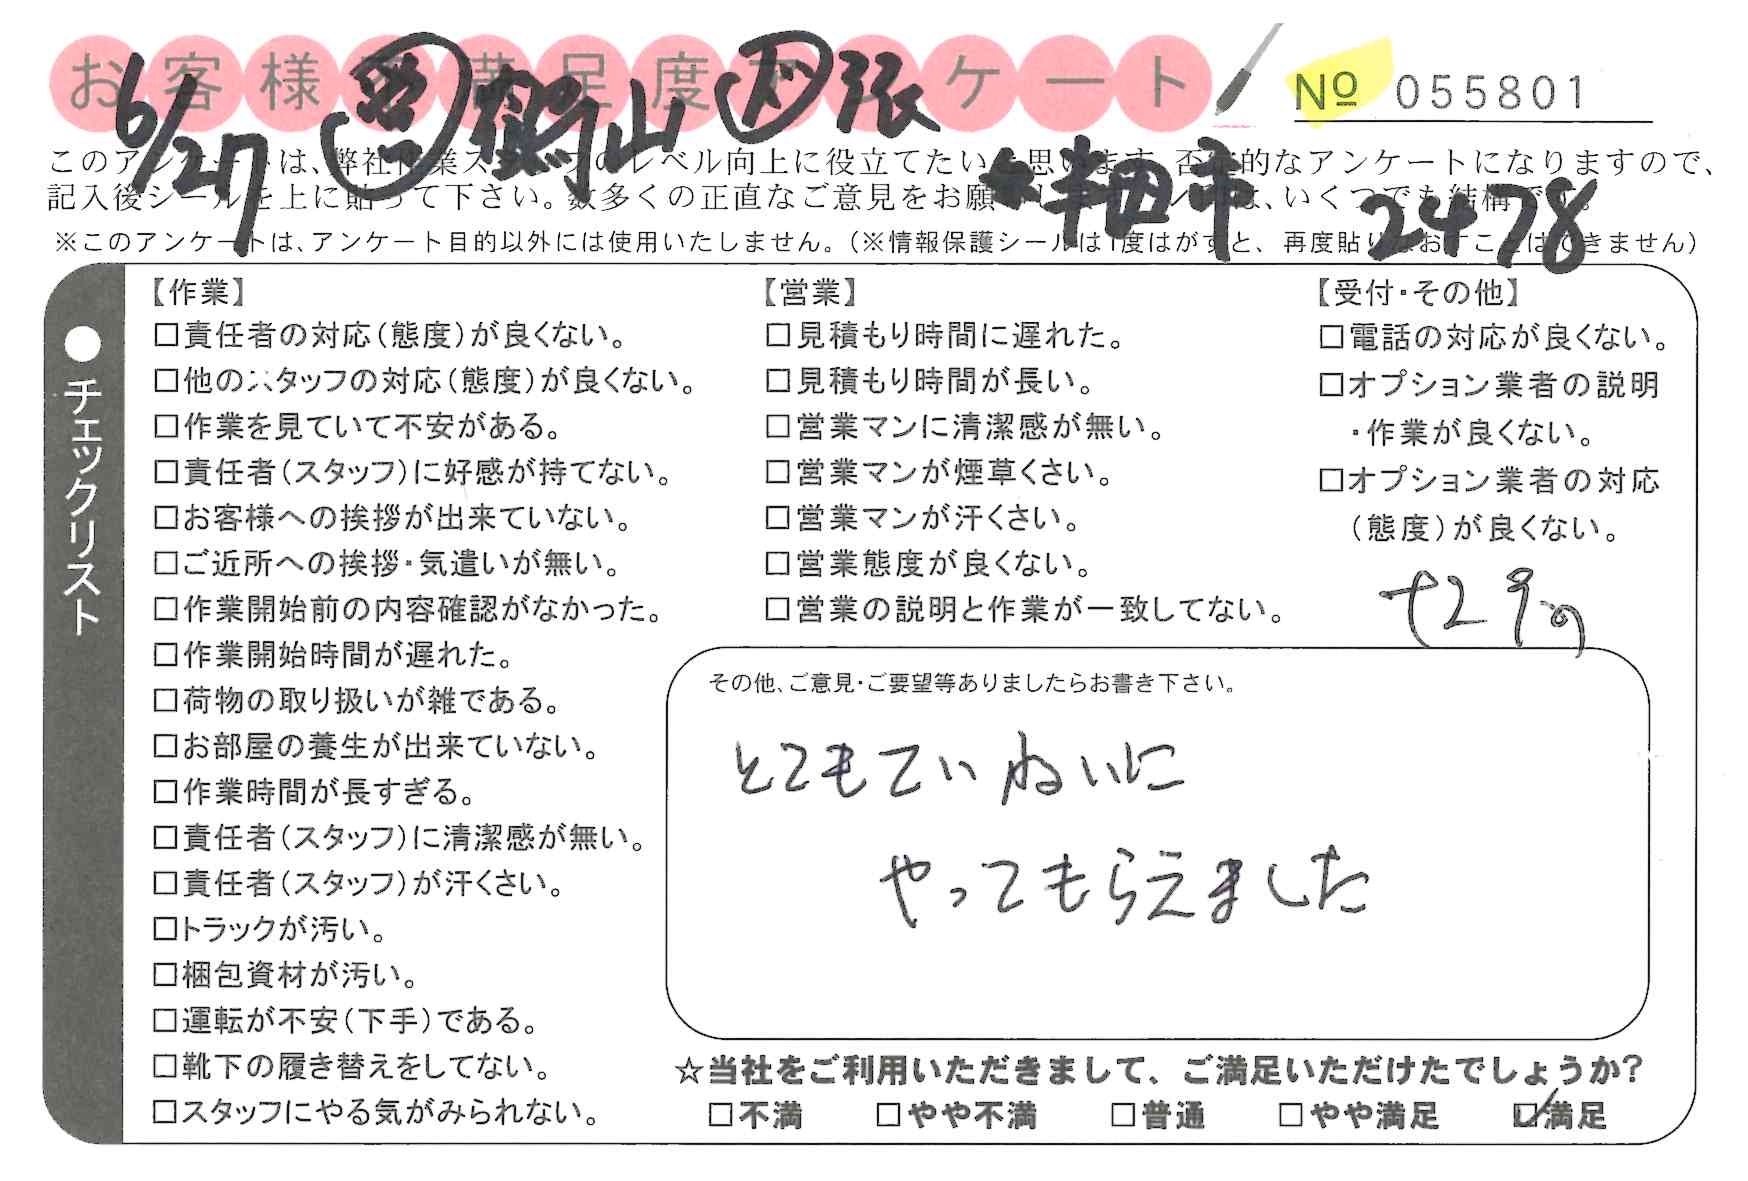 お客様満足度アンケート
№ 055801
6/27 営 鶴山 〆 張
半田市 2478
このアンケートは、弊社作業スタッフのレベル向上に役立てたいと思います。否定的なアンケートになりますので、
記入後シールを上に貼って下さい。数多くの正直なご意見をお願いします。は、いくつでも結構です。
※このアンケートは、アンケート目的以外には使用いたしません。（※情報保護シールは1度はがすと、再度貼りなおすことはできません）
●チェックリスト
【作業】
□責任者の対応（態度）が良くない。
□他のスタッフの対応（態度）が良くない。
□作業を見ていて不安がある。
□責任者（スタッフ）に好感が持てない。
□お客様への挨拶が出来ていない。
□ご近所への挨拶・気遣いが無い。
□作業開始前の内容確認がなかった。
□作業開始時間が遅れた。
□荷物の取り扱いが雑である。
□お部屋の養生が出来ていない。
□作業時間が長すぎる。
□責任者（スタッフ）に清潔感が無い。
□責任者（スタッフ）が汗くさい。
□トラックが汚い。
□梱包資材が汚い。
□運転が不安（下手）である。
□靴下の履き替えをしてない。
□スタッフにやる気がみられない。
【営業】
□見積もり時間に遅れた。
□見積もり時間が長い。
□営業マンに清潔感が無い。
□営業マンが煙草くさい。
□営業マンが汗くさい。
□営業態度が良くない。
□営業の説明と作業が一致してない。
【受付・その他】
□電話の対応が良くない。
□オプション業者の説明
・作業が良くない。
□オプション業者の対応
（態度）が良くない。
その他、ご意見・ご要望等ありましたらお書き下さい。
とてもていねいに
やってもらえました
☆当社をご利用いただきまして、ご満足いただけたでしょうか？
□不満 □やや不満 □普通 □やや満足 ☑満足